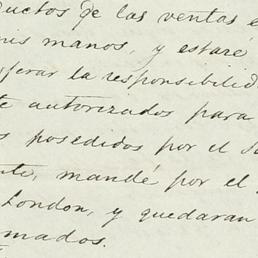 ductos de las ventas e
mis manos, y estaré
ferar la responsibilid
te autorizados para
s posedidos por el S
te, mandé por el
London, y quedaran
mados.